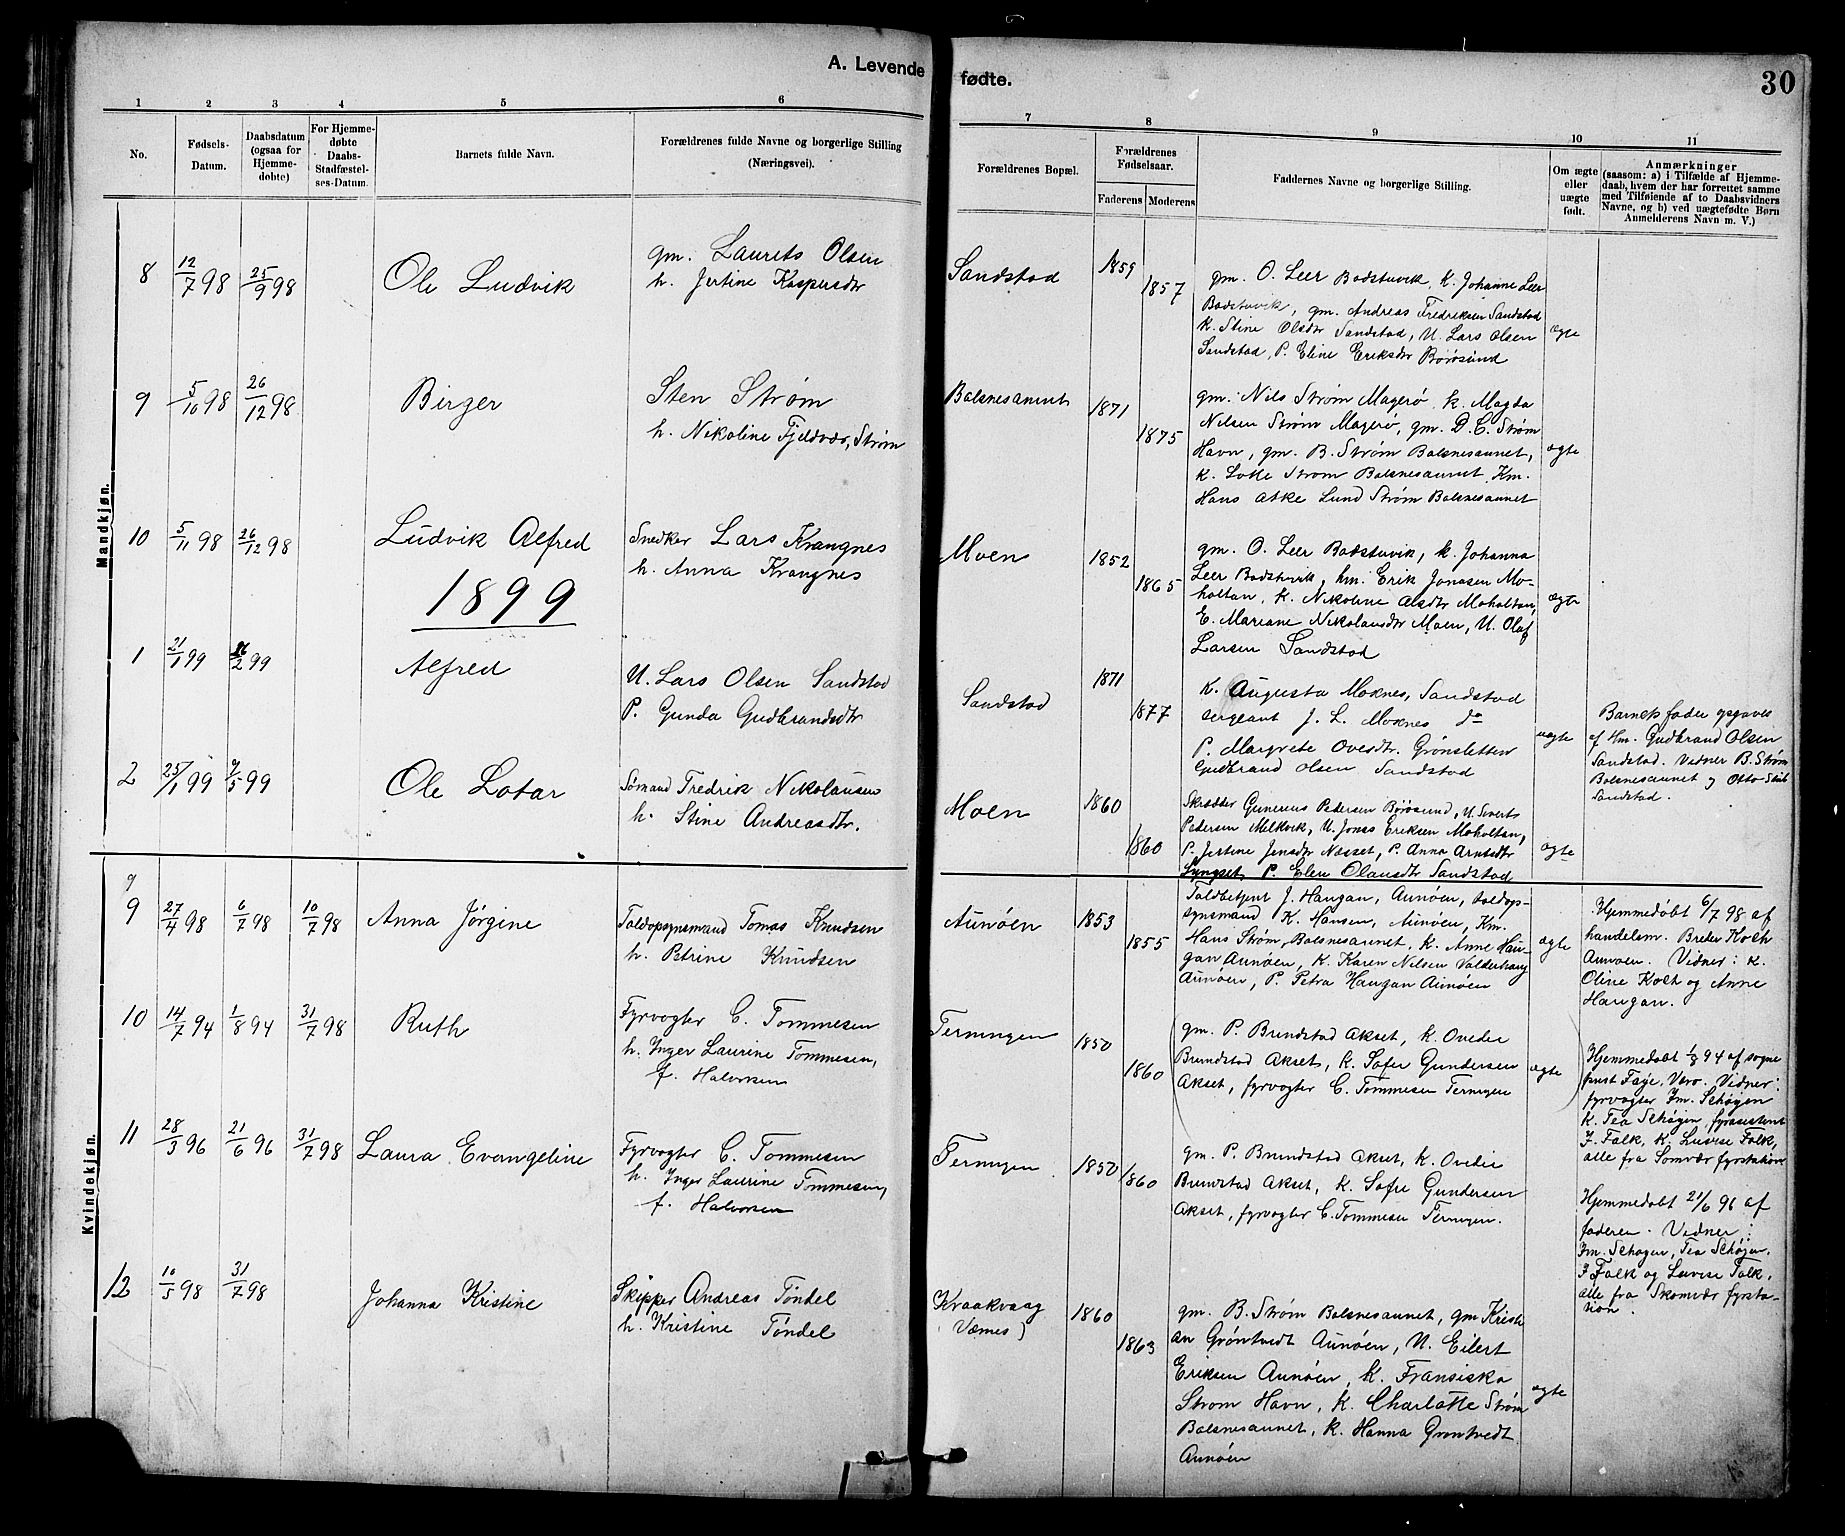 A. Levende fødte.
30
1 2 3 4 5 6 7 8 9 10 11
No.
Fødsels-
Datum.
Daabsdatum
(ogsaa for
Hjemme-
døbte)
For Hjemme-
døbte
Daabs-
Stadfæstel-
ses-Datum.
Barnets fulde Navn.
Forældrenes fulde Navne og borgerlige Stilling
(Næringsvei).
Forældrenes Bopæl.
Forældrenes
Fødselsaar.
Faderens Moderens
Faddernes Navne og borgerlige Stilling.
Om ægte
eller
uægte
født.
Anmærkninger
(saasom: a) i Tilfælde af Hjemme-
daab, hvem der har forrettet samme
med Tilføiende af to Daabsvidners
Navne, og b) ved uægtefødte Børn
Anmelderens Navn m. V.)
Mandkjøn.
8 12/7 98 25/9 98 Ole Ludvik
gm. Laurits Olsen
h. Jertine Kaspersdtr
Sandstad 1859 1857
gm. O. Leer Badstuvik, k. Johanne Leer
Badstuvik, gm. Andreas Fredriksen Sandstad
k. Stine Olsdtr Sandstad, U. Lars Olsen
Sandstad, P. Eline Eriksdtr Børøsund
ægte
9 5/10 98 26/12 98 Birger
Sten Strøm
h. Nikoline Fjeldvær, Strøm
Balsnesaunet 1871 1875
gm. Nils Strøm Magerø, k. Magda
Nilsen Strøm Magerø, gm. D. C. Strøm
Havn, gm. B. Strøm Balsnesaunet,
k. Lotte Strøm Balsnesaunet, Km.
Hans Atke Lund Strøm Balsnesaunet
ægte
10 5/11 98 26/12 98 Ludvik Alfred
Snedker Lars Krangnes
h. Anna Krangnes
Moen 1852 1865
gm. O. Leer Badstuvik, k. Johanna
Leer Badstuvik, hm. Erik Jonasen Mo-
holtan, k. Nikoline Olsdtr Moholtan,
E. Mariane Nikolausdtr Moen, U. Olaf
Larsen Sandstad
ægte
1899
1 21/1 99 26/2 99 Alfred
U. Lars Olsen Sandstad
P. Gunda Gudbrandsdtr
Sandstad 1871 1877
K. Augusta Moknes, Sandstad
sergeant J. L. Moknes do
P. Margrete Ovesdtr Grønsletten
Gudbrand Olsen Sandstad
uægte
Barnets fader opgaves
af Hm. Gudbrand Olsen
Sandstad. Vidner B. Strøm
Balsnesaunet og Otto
Sandstad.
2 25/1 99 7/5 99 Ole Lotar
Sømand Fredrik Nikolausen
h. Stine Andreasdtr.
Moen 1860 1860
Skrædder Gunerius Pedersen Børøsund, U. Sivert
Pedersen Melkvik, U. Jonas Eriksen Moholtan,
P. Jertine Jensdtr Næsset, P. Anna Arntsdtr
P. Elen Olausdtr Sandstad
ægte
Kvindekjøn.
9
9 27/4 98 6/7 98 10/7 98 Anna Jørgine
Toldopsynsmand Tomas Knudsen
h. Petrine Knudsen
Aunøen 1853 1855
Toldbetjent J. Haugan, Aunøen, toldop-
synsmand K. Hansen, Aunøen, Km.
Hans Strøm, Balsnesaunet, k. Anne Hau-
gan Aunøen, K. Karen Nilsen Valderhaug
Aunøen, P. Petra Haugan Aunøen
ægte
Hjemmedøbt 6/7 98 af
handelsm. Breder Koch
Aunøen. Vidner: k.
Oline Koch og Anne
Haugan.
10 14/7 94 1/8 94 31/7 98 Ruth
Fyrvogter C. Tommesen
h. Inger Laurine Tommesen,
f. Halvorsen
Terningen 1850 1860
gm. P. Brundstad Akset, k. Ovedie
Brundstad Akset, k. Sofie Gundersen
Akset, fyrvogter C. Tommesen Terningen
ægte
Hjemmedøbt 1/8 94 af sogne
prest Faye, Værø. Vidner:
fyrvogter Fm. Schøgen
k. Tea Schøgen, fyrassistent
F. Falk, k. Luvise Falk,
alle fra Somvær fyrstation
11 28/3 96 21/6 96 31/7 98 Laura Evangeline
Fyrvogter C. Tommesen
h. Inger Laurine Tommesen,
f. Halvorsen
Terningen 1850 1860
gm. P. Brundstad Akset, K. Ovedie
Brunstad Akset, k. Sofie Gundersen
Akset, fyrvogter C. Tommesen Terningen.
Hjemmedøbt 21/6 96 af
faderen. Vidner:
Fm. Schøgen, Tea Schøgen.
F Falk og Luvise Falk,
alle fra Skomvær fyrsta-
tion.
12 10/5 98 31/7 98 Johanna Kristine
Skipper Andreas Tøndel
h. Kristine Tøndel
Kraakvaag
(Værnes) 1860 1863
gm. B. Strøm Balsnesaunet, gm Kristi
an Grøntvedt Aunøen, U. Eilert
Eriksen Aunøen, k. Fransiska
Strøm Havn, K. Charlotte Strøm
Balsnesaunet, k. Hanna Grøntvedt
Aunøen
ægte